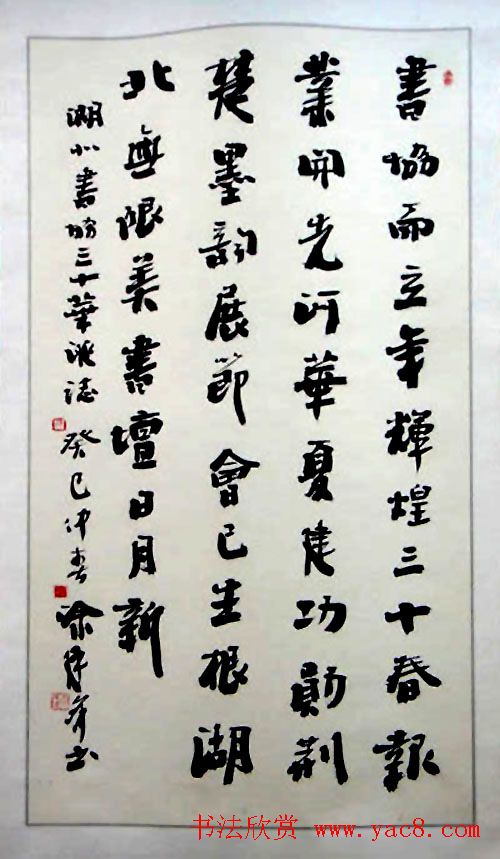 書協而立年輝煌三十春報
業開先河華夏建功勛荆
楚墨韵展節會已生根湖
北無限美書壇日月新
湖北書協三十華誕誌 癸巳仲春 徐 书
书法欣赏 www.yac8.com